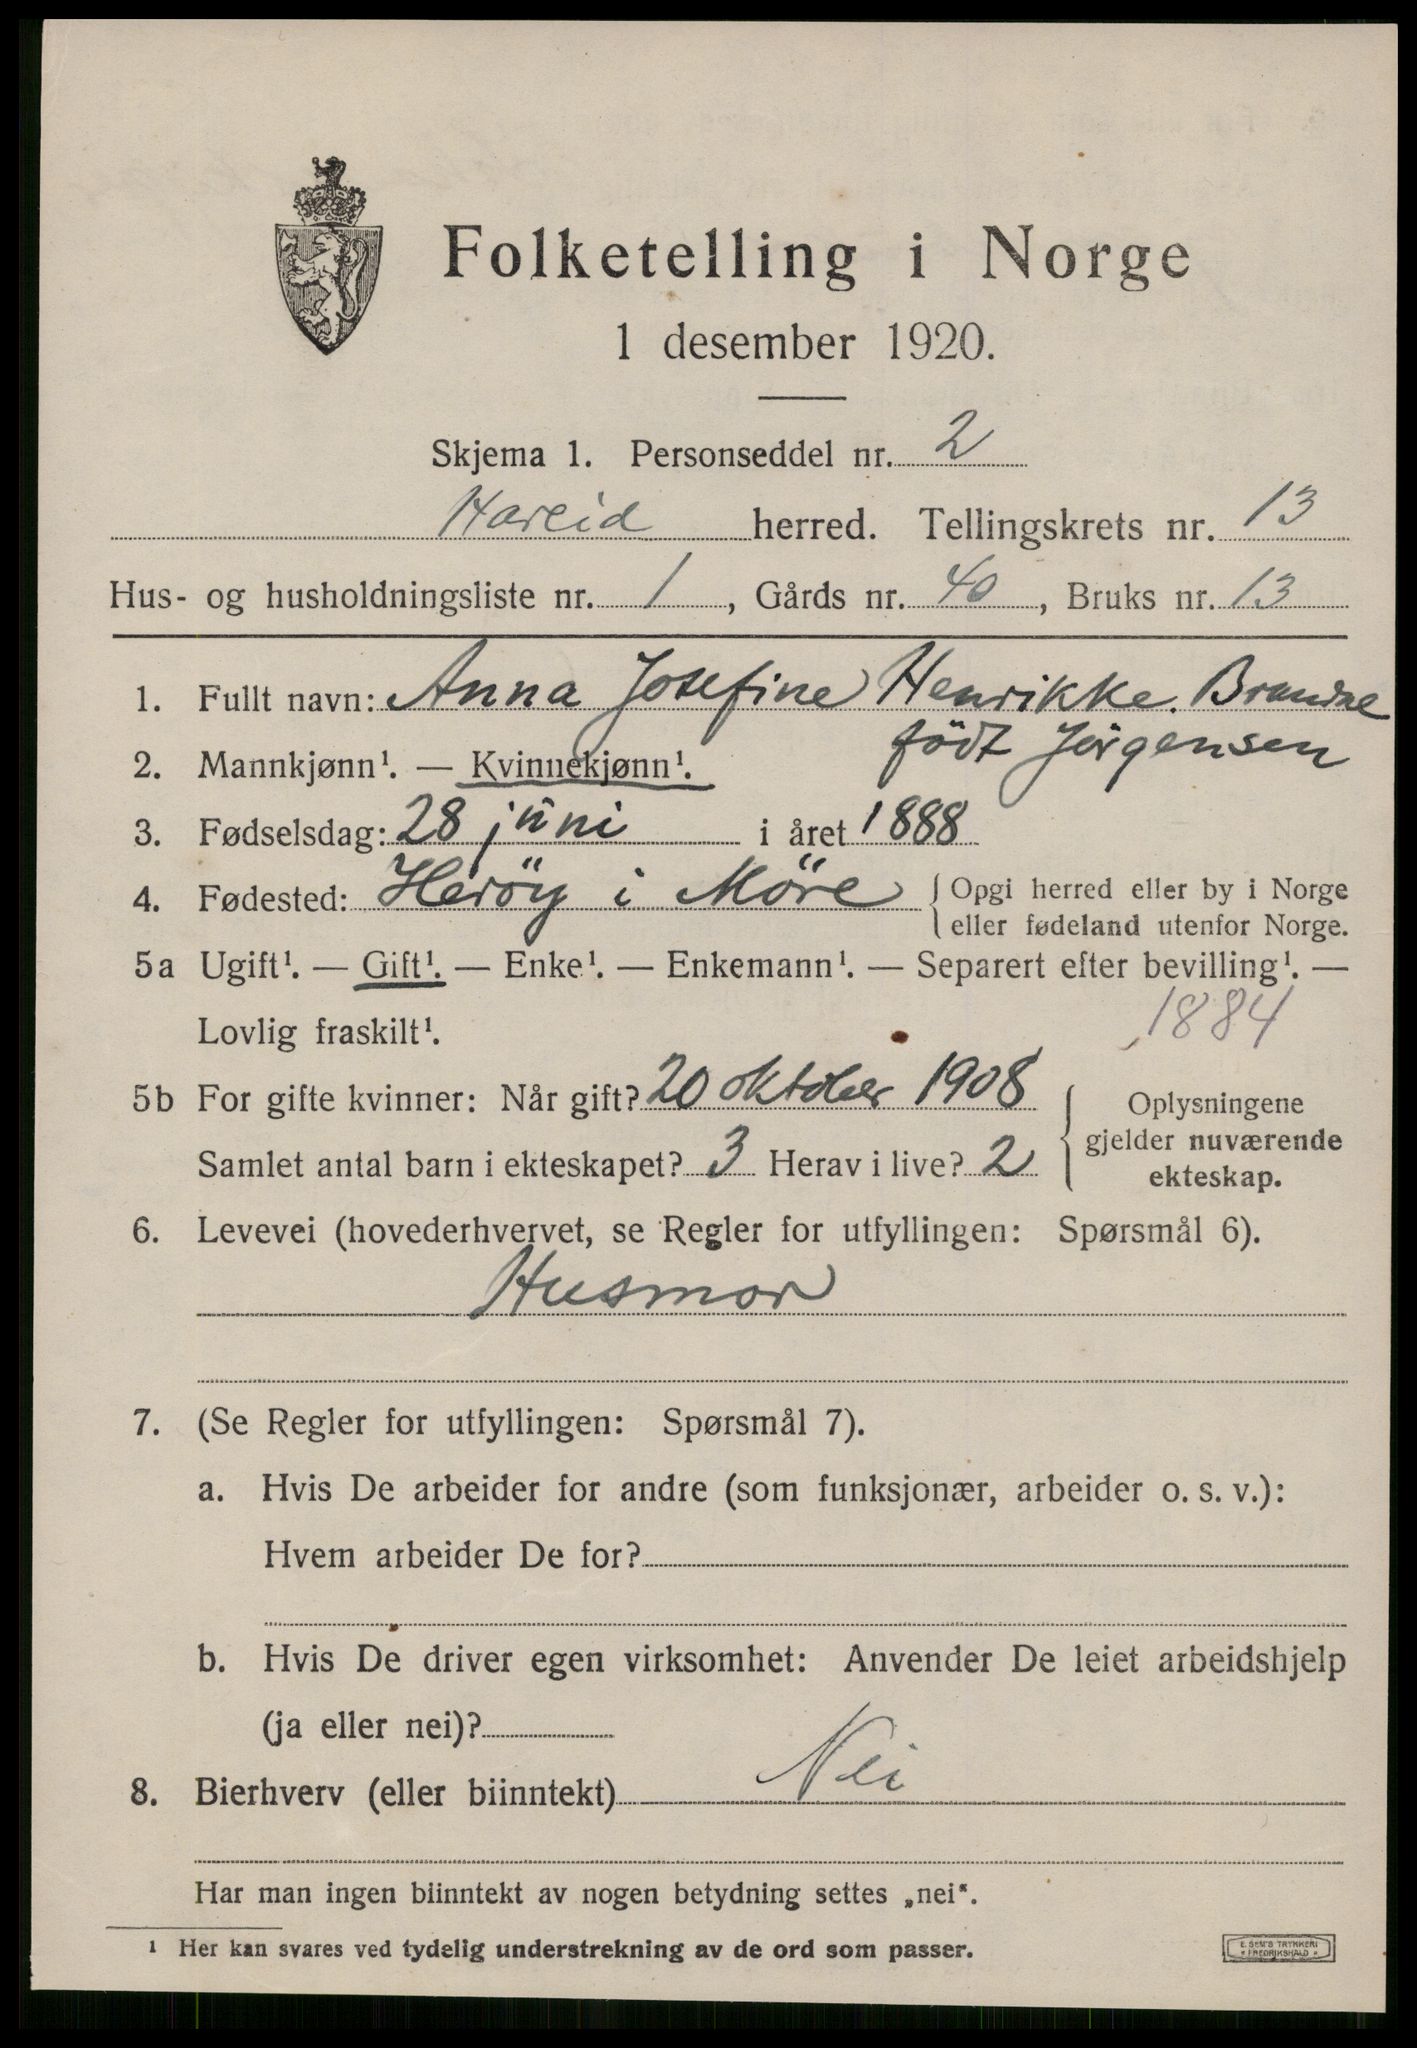 Folketelling i Norge
1 desember 1920.
Skjema 1. Personseddel nr. 2
Hareid herred. Tellingskrets nr. 13
Hus- og husholdningsliste nr. 1, Gårds nr. 40, Bruks nr. 13
1. Fullt navn: Anna Josefine Henrikke.
födt Jörgensen
2. Mannkjønn¹. — Kvinnekjønn¹.
3. Fødselsdag: 28 juni i året 1888
4. Fødested: Heröy i Möre { Opgi herred eller by i Norge
eller fødeland utenfor Norge.
5a Ugift¹. — Gift¹. — Enke¹. — Enkemann¹. — Separert efter bevilling¹. —
Lovlig fraskilt¹. 1884
5b For gifte kvinner: Når gift? 20 oktober 1908
Samlet antal barn i ekteskapet? 3 Herav i live? 2
{ Oplysningene
gjelder nuværende
ekteskap.
6. Levevei (hovederhvervet, se Regler for utfyllingen: Spørsmål 6).
Husmor
7. (Se Regler for utfyllingen: Spørsmål 7).
a. Hvis De arbeider for andre (som funksjonær, arbeider o. s. v.):
Hvem arbeider De for?
b. Hvis De driver egen virksomhet: Anvender De leiet arbeidshjelp
(ja eller nei)?
8. Bierhverv (eller biinntekt) Nei
Har man ingen biinntekt av nogen betydning settes „nei“.
¹ Her kan svares ved tydelig understrekning av de ord som passer.
E. SEM'S TRYKKERI
* FREDRIKSHALD *